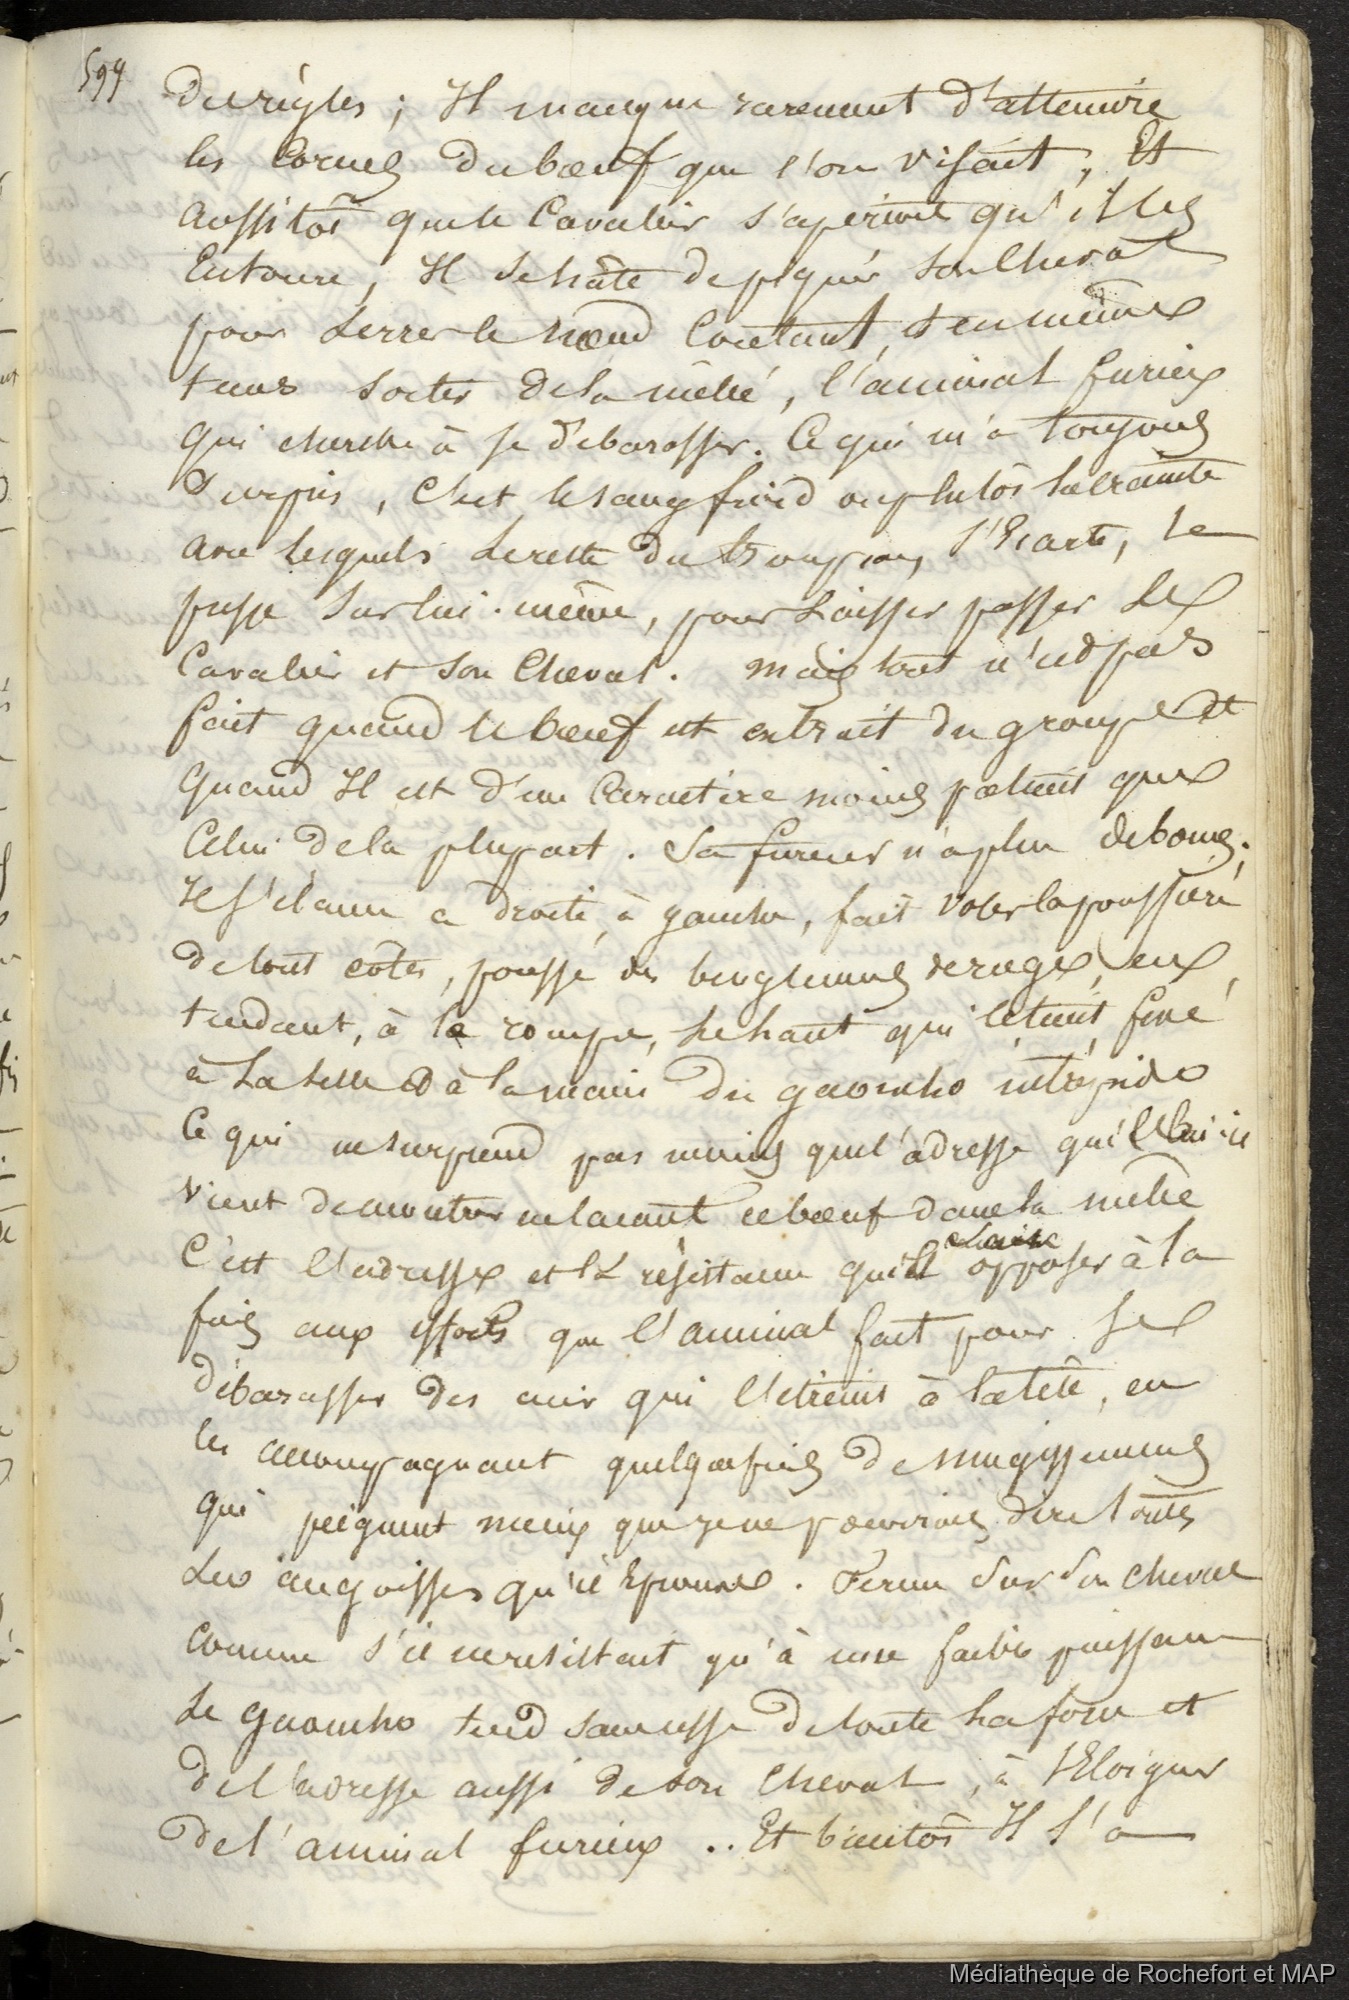 599
des règles ; Il manque rarement d'atteindre
les Cornes du bœuf que l'on visait, Et
aussitôt que le Cavalier s'aperçoit qu'il les
Entoure, Il se hâte de piquer son Cheval
pour serrer le nœud Coulant, et en même
tems sortir de la mêlée, l'animal furieux
qui cherche à se débarasser. Ce qui m'a toujours
Surpris, C'est le sang froid ou plutôt la crainte
avec lesquels le reste du troupeau, s'Ecarte, se
presse sur lui-même, pour Laisser passer Le
Cavalier et son Cheval. mais tout n'est pas
fait quand le bœuf est extrait du groupe et
quand Il est d'un Caractère moins patient que
Celui de la plupart. Sa fureur n'a plus de bornes.
Il s'élance a droite, à gauche, fait voler la poussière
de tout côtés, pousse des beuglemens de rage, en
tendant, à le rompre, le haut qui l'étient, fixé
à La selle et à la main du gaoucho intrépide
Ce qui ne surprend pas moins que l'adresse qu'il
vient de montrer en laçant ce bœuf dans la mêlée
C'est l'adresse et la résistance qu'il opposer à la
fois aux efforts que l'animal fait pour se
débarasser des cuir qui l'etreint à la tête, en
les accompagnant quelquefois de mugissemens
qui peignent mieux que je ne pourrais dire toutes
Les angoisses qu'il Eprouve. Ferme sur son cheval
comme s'il ne resistait qu'à une faible puissance
Le gaoucho tend sans cesse de toute sa force et
de l'adresse aussi de son Cheval, à s'Eloigner
de l'animal furieux .. Et bientôt Il l'a
Médiathèque de Rochefort et MAP